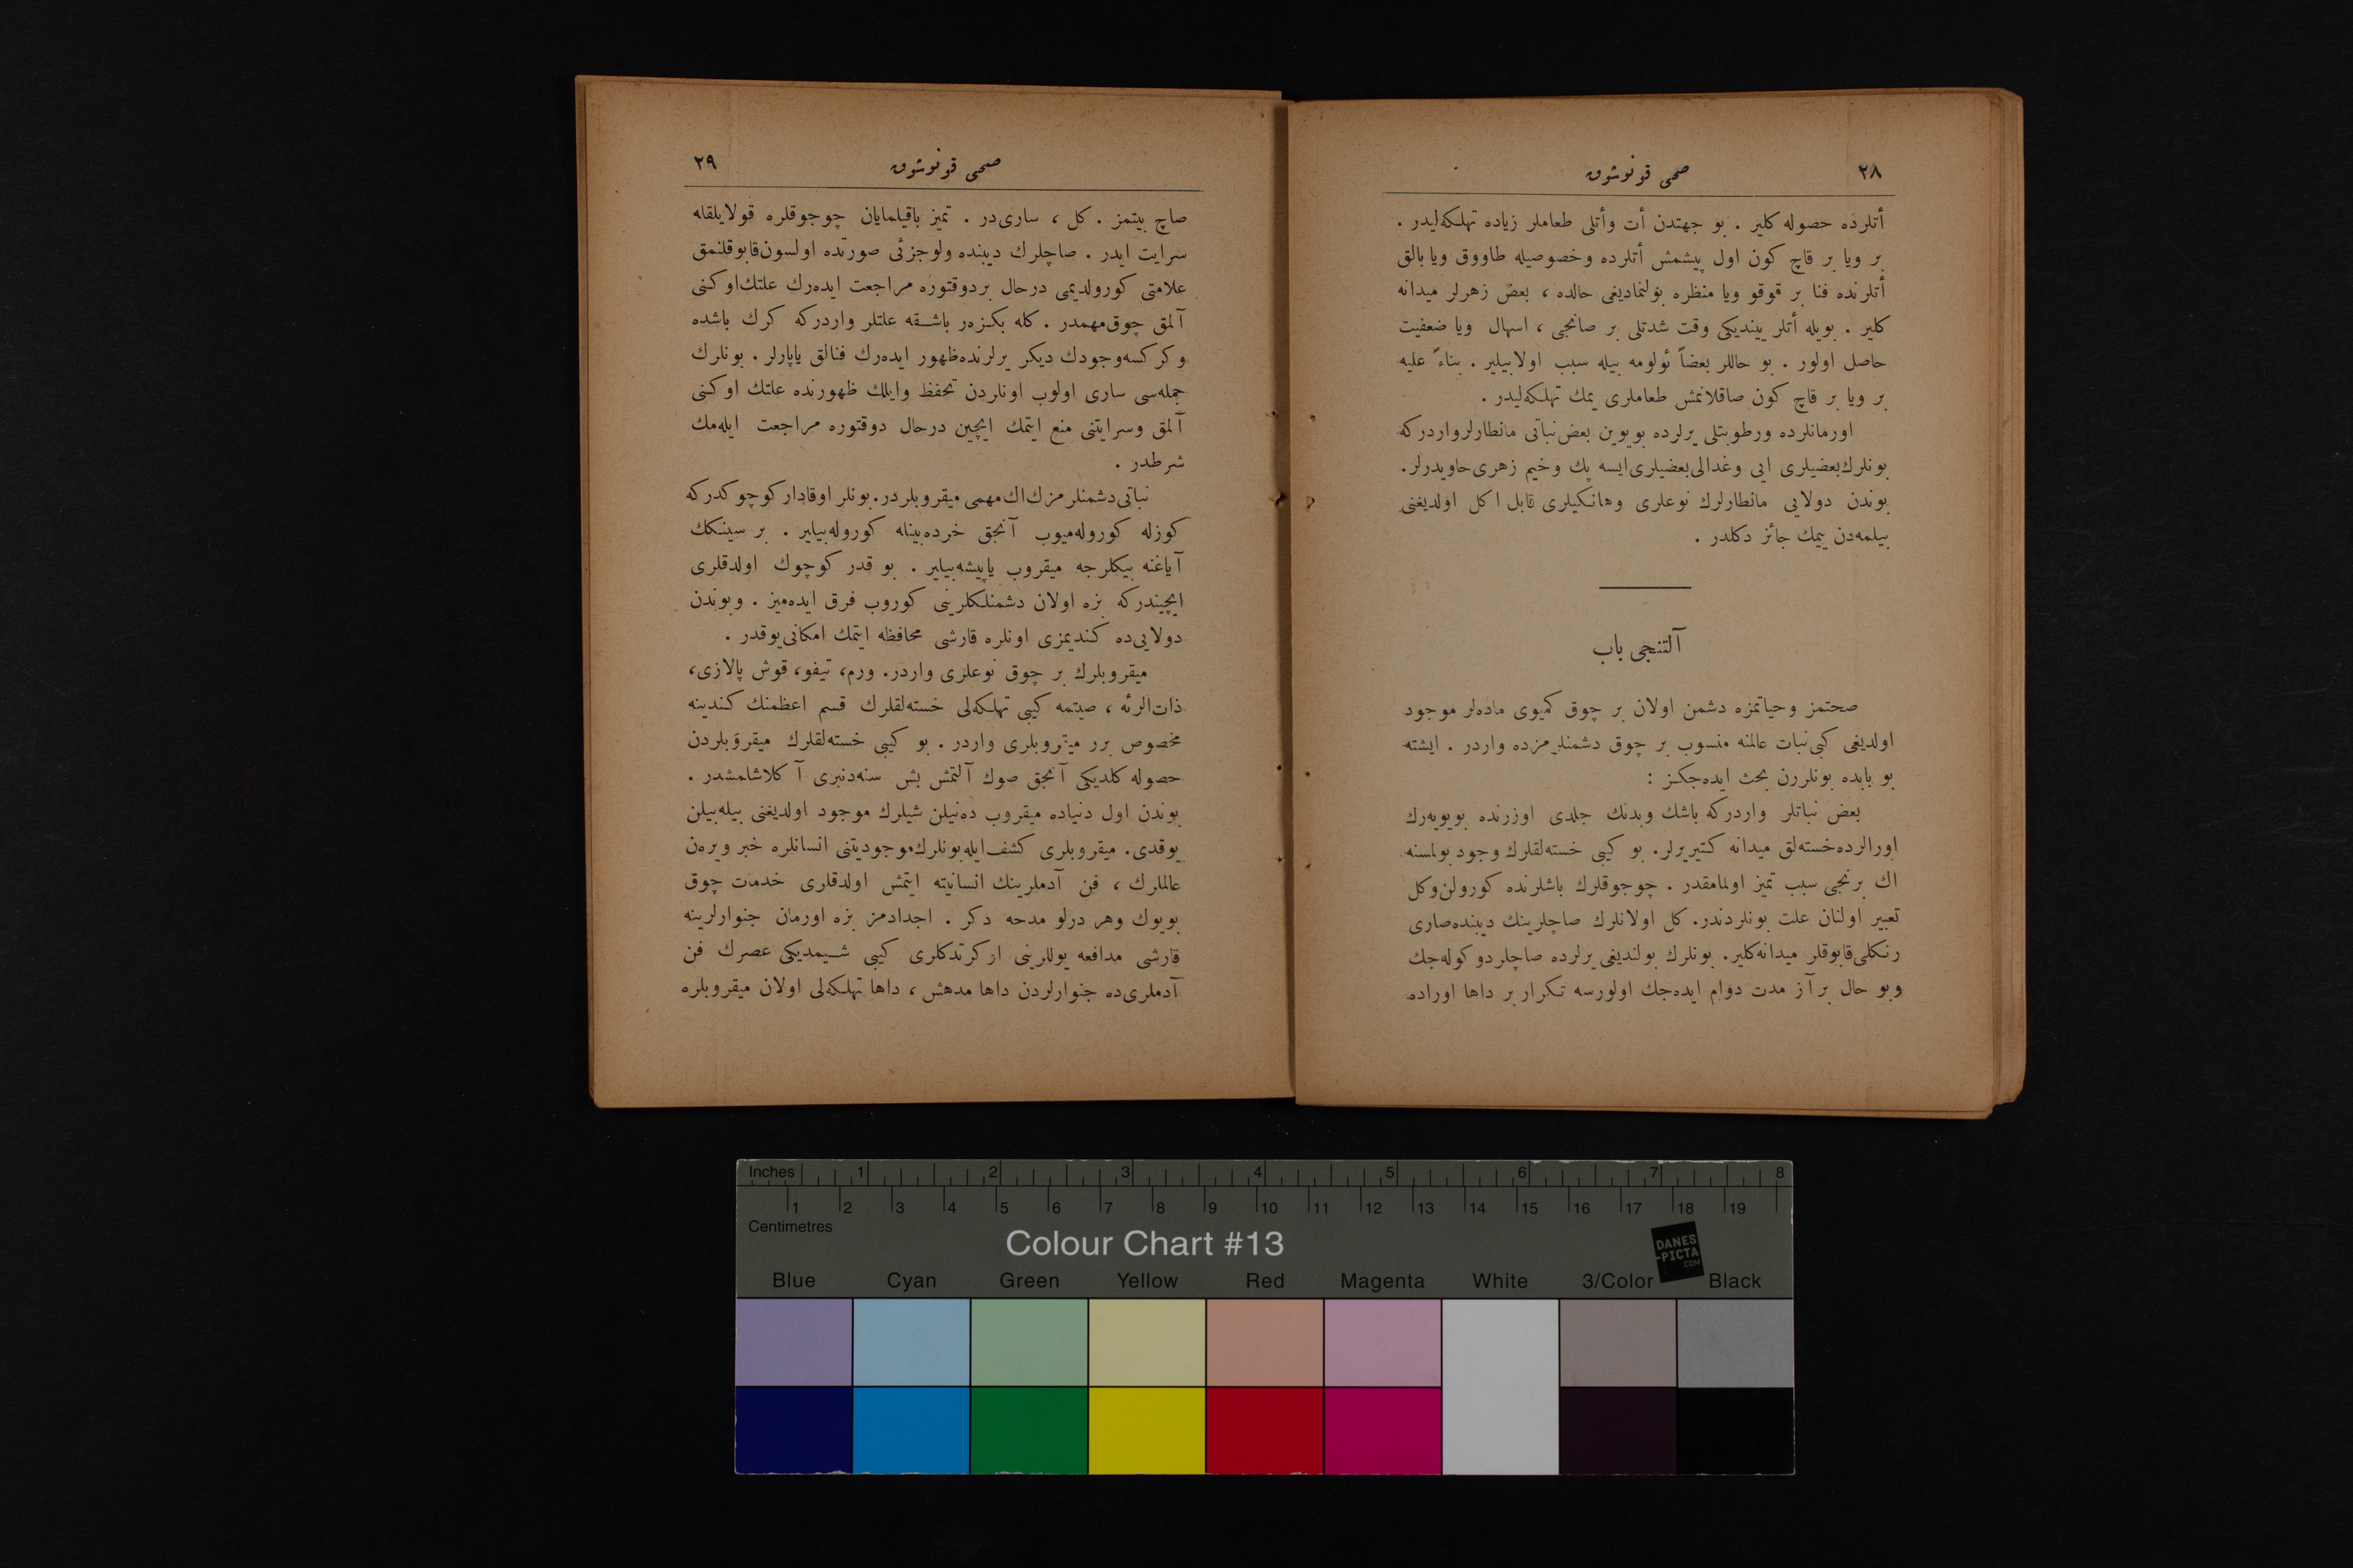 ٢٨
صحی قونوشوق
أتلرده حصوله كلیر . بو جهتدن أت وأتلی طعاملر زیاده تهلكه‌لیدر .
بر ویا بر قاچ كون اول پیشمش أتلرده وخصوصیله طاووق ویا بالق
أتلرنده فنا بر قوقو ویا منظره بولنمادیغی حالده ، بعض زهرلر میدانه
كلیر . بویله أتلر ییندیكی وقت شدتلی بر صانجی ، اسهال ویا ضعفیت
حاصل اولور . بو حاللر بعضاً ئولومه بیله سبب اولابیلیر . بناءً علیه
بر ویا بر قاچ كون صاقلانمش طعاملری یمك تهلكه‌لیدر .
اورمانلرده ورطوبتلی یرلرده بویوین بعض نباتی مانطارلر واردركه
بونلرك بعضیلری ایی وغدالی بعضیلری ایسه پك وخیم زهری حاویدرلر.
بوندن دولایی مانطارلرك نوعلری وهانكیلری قابل اكل اولدیغنی
بیلمه‌دن ییمك جائز دكلدر .
آلتنجی باب
صحتمز وحیاتمزه دشمن اولان بر چوق كمیوی ماده‌لر موجود
اولدیغی كبی نبات عالمنه منسوب بر چوق دشمنلریمزده واردر . ایشته
بو بابده بونلردن بحث ایده‌جكز :
بعض نباتلر واردركه باشك وبدنك جلدی اوزرنده بویویه‌رك
اورالرده خسته‌لق میدانه كتیریرلر. بو كیبی خسته‌لقلرك وجود بولمسنه
اك برنجی سبب تمیز اولمامقدر . چوجوقلرك باشلرنده كورولن وكل
تعبیر اولنان علت بونلردندر. كل اولانلرك صاچلرینك دیبنده صاری
رنكلی قابوقلر میدانه كلیر. بونلرك بولندیغی یرلرده صاچلر دوكوله‌جك
وبو حال بر آز مدت دوام ایده‌جك اولورسه تكرار بر داها اوراده
صحی قونوشوق
٢٩
صاچ بیتمز . كل ، ساری‌در . تمیز باقیلمایان چوجوقلره قولایلقله
سرایت ایدر . صاچلرك دیبنده ولوجزئی صورتده اولسون قابوقلنمق
علامتی كورولدیمی درحال بر دوقتوره مراجعت ایده‌رك علتك اوكنی
آلمق چوق مهمدر . كله بكزه‌ر باشقه علتلر واردركه كرك باشده
وكركسه وجودك دیكر یرلرنده ظهور ایده‌رك فنالق یاپارلر . بونلرك
جمله‌سی ساری اولوب اونلردن تحفظ وایلك ظهورنده علتك اوكنی
آلمق وسرایتنی منع ایتمك ایچین درحال دوقتوره مراجعت ایله‌مك
شرطدر .
نباتی دشمنلرمزك اك مهمی میقروبلردر. بونلر اوقادار كوچوكدركه
كوزله كوروله‌میوب آنجق خرده‌بینله كوروله‌بیلیر . بر سینكك
آیاغنه بیكلرجه میقروب یاپیشه‌بیلیر . بو قدر كوچوك اولدقلری
ایچیندركه بزه اولان دشمنلكلرینی كوروب فرق ایده‌میز . وبوندن
دولایی‌ده كندیمزی اونلره قارشی محافظه ایتمك امكانی یوقدر .
میقروبلرك بر چوق نوعلری واردر. ورم، تیفو، قوش پالازی،
ذات‌الرئه ، صیتمه كیبی تهلكه‌لی خسته‌لقلرك قسم اعظمنك كندینه
مخصوص برر میقروبلری واردر . بو كیبی خسته‌لقلرك میقروبلردن
حصوله كلدیكی آنجق صوك آلتمش بش سنه‌دنبری آكلاشلمشدر .
بوندن اول دنیاده میقروب ده‌نیلن شیلرك موجود اولدیغنی بیله بیلن
یوقدی. میقروبلری كشف ایله بونلرك موجودیتنی انسانلره خبر ویره‌ن
عالملرك ، فن آدملرینك انسانیته ایتمش اولدقلری خدمات چوق
بویوك وهر درلو مدحه دكر . اجدادمز بزه اورمان جنوارلرینه
قارشی مدافعه یوللرینی اوكرتدكلری كیبی شیمدیكی عصرك فن
آدملری‌ده جنوارلردن داها مدهش ، داها تهلكه‌لی اولان میقروبلره
Inches 1 2 3 4 5 6 7 8
1 2 3 4 5 6 7 8 9 10 11 12 13 14 15 16 17 18 19
Centimetres
Colour Chart #13
DANES
-PICTA
.COM
Blue Cyan Green Yellow Red Magenta White 3/Color Black